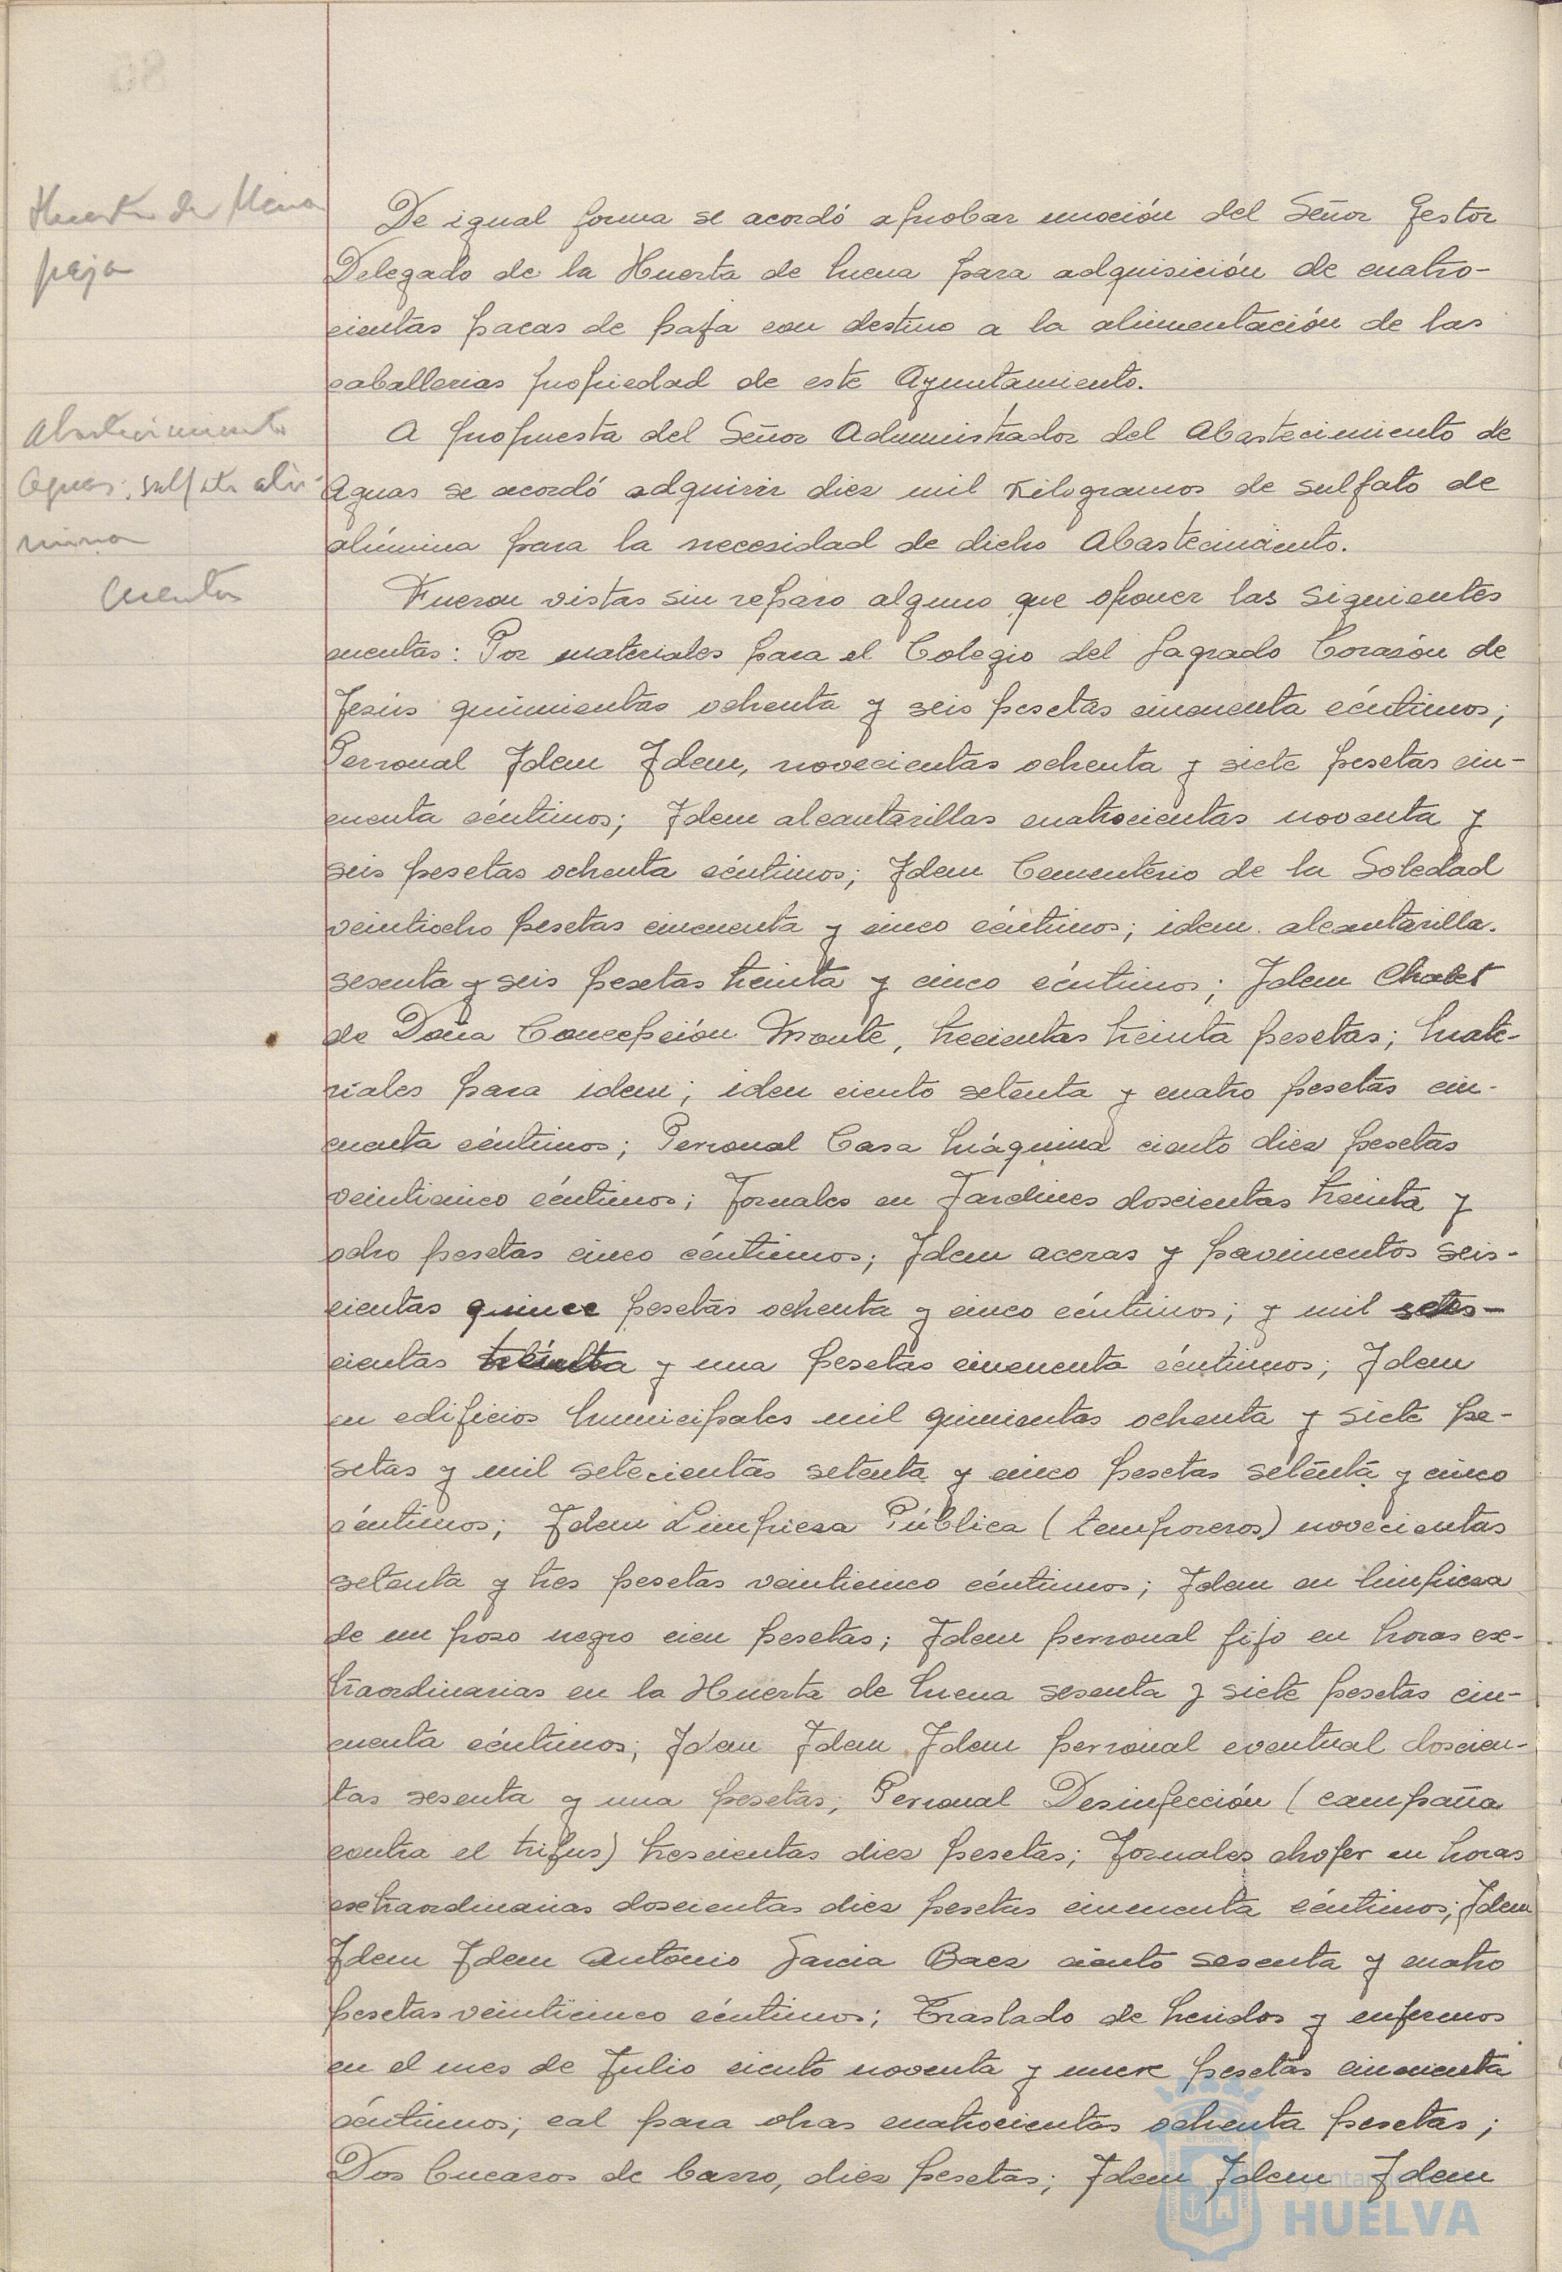 Huerta de Mena
paja
De igual forma se acordó aprobar moción del Señor Gestor
Delegado de la Huerta de Mena para adquisición de cuatro-
cientas pacas de paja con destino a la alimentación de las
caballerias propiedad de este Ayuntamiento.
Abastecimiento
Aguas. sulfato alú-
mina
A propuesta del Señor Administrador del Abastecimiento de
Aguas se acordó adquirir diez mil Kilogramos de sulfato de
alúmina para la necesidad de dicho Abastecimiento.
Cuentas
Fueron vistas sin reparo alguno que oponer las siguientes
cuentas: Por materiales para el Colegio del Sagrado Corazón de
Jesús quinientas ochenta y seis pesetas cincuenta céntimos;
Personal Idem Idem, novecientas ochenta y siete pesetas cin-
cuenta céntimos; Idem alcantarillas cuatrocientas noventa y
seis pesetas ochenta céntimos; Idem Cementerio de la Soledad
veintiocho pesetas cincuenta y cinco céntimos; idem alcantarilla.
sesenta y seis pesetas treinta y cinco céntimos; Idem Chalet
de Doña Concepción Monte, trecientas treinta pesetas; Mate-
riales para idem; idem ciento setenta y cuatro pesetas cin-
cuenta céntimos; Personal Casa Máquina ciento diez pesetas
veinticinco céntimos; Jornales en Jardines doscientas treinta y
ocho pesetas cinco céntimos; Idem aceras y pavimentos seis-
cientas quince pesetas ochenta y cinco céntimos; y mil setes-
cientas treinta y una pesetas cincuenta céntimos; Idem
en edificios Municipales mil quinientas ochenta y siete pe-
setas y mil setecientas setenta y cinco pesetas setenta y cinco
céntimos; Idem Limpieza Pública (temporeros) novecientas
setenta y tres pesetas veinticinco céntimos; Idem en limpieza
de un pozo negro cien pesetas; Idem personal fijo en horas ex-
traordinarias en la Huerta de Mena sesenta y siete pesetas cin-
cuenta céntimos; Idem Idem Idem personal eventual doscien-
tas sesenta y una pesetas; Personal Desinfección (campaña
contra el trifus) trescientas diez pesetas; Jornales chofer en horas
extraordinarias doscientas diez pesetas cincuenta céntimos; Idem
Idem Idem Antonio Garcia Baez ciento sesenta y cuatro
pesetas veinticinco céntimos; Traslado de heridos y enfermos
en el mes de Julio ciento noventa y nueve pesetas cincuenta
céntimos; cal para obras cuatrocientas ochenta pesetas;
Dos Bucaros de barro, diez pesetas; Idem Idem Idem
Ayuntamiento
HUELVA